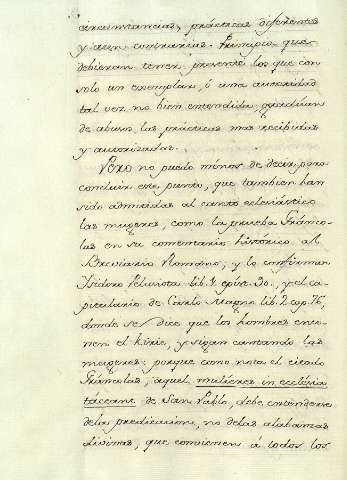 circunstancias, prácticas diferentes
y aun contrarias. Principio que
debieran tener presente los que con
solo un exemplar, ó una autoridad
tal vez no bien entendida, gradúan
de abuso las prácticas mas recibidas
y autorizadas.
Pero no puedo minos de decir para
concluir este punto, que tambien han
sido admitidas al canto eclesiástico
las mugeres, como lo prueba Gránco-
las en su comentario histórico al
Breviario Romano; y lo confirman
Isidoro Pelusiota lib. 1 epist. 90., y el ca-
pitulario de Carlo Magno lib. 2 cap. 76,
donde se dice que los hombres ento-
nen el kirie, y sigan cantando las
mugeres: porque como nota el citado
Gráncolas, aquel mulieres in ecclesia
taceant de San Pablo, debe entenderse
de la predicacion, no de las alabanzas
divinas, que convienen á todos los